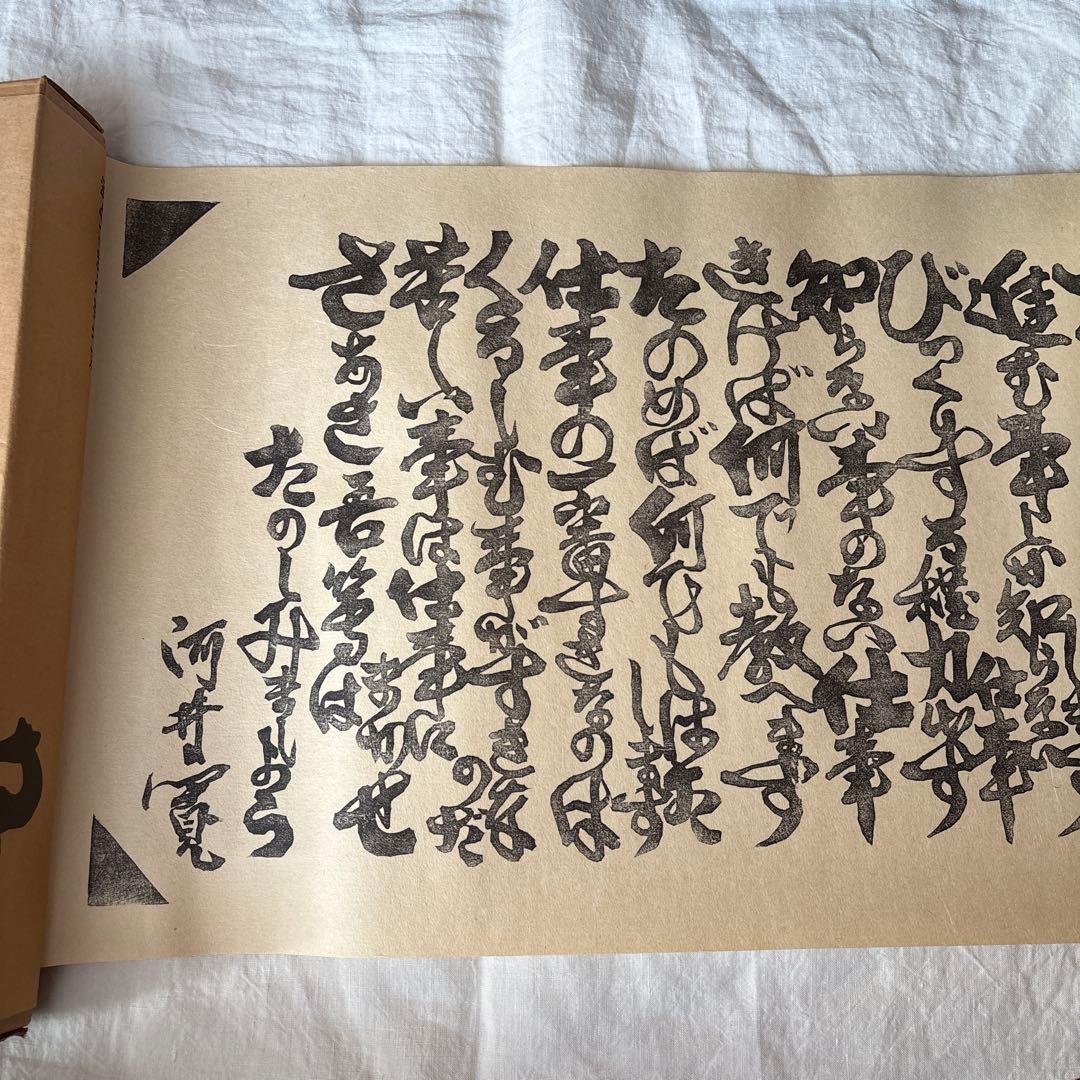 進む事しか知らない仕事
びっくりする程力出す
知らない事のない仕事
きけば何でも教へます
たのめば何でもはたします
仕事の一番すきなのは
くるしむ事がすきなのだ
苦しい事は仕事にまかせ
さあさ吾等は
たのしみましょう
河井寛